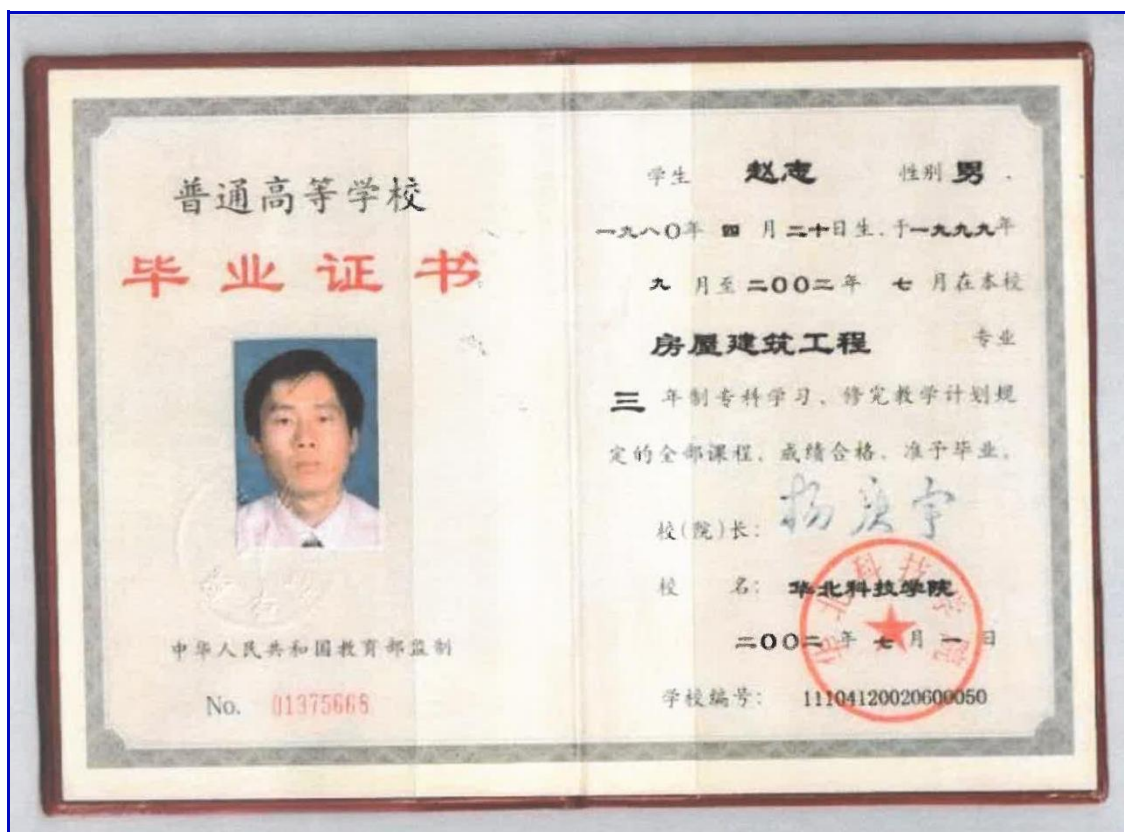 普通高等学校
毕业证书
中华人民共和国教育部监制
No. 01375668
学生 赵志 性别 男 .
一九八〇年 四 月 二十日生,于一九九九年
九 月至二〇〇二年 七 月在本校
房屋建筑工程 专业
三 年制专科学习、修完教学计划规
定的全部课程、成绩合格、准予毕业。
校(院)长:
校 名: 华北科技学院
二〇〇二 年 七 月 一 日
学校编号: 11104120020600050
华北科技学院